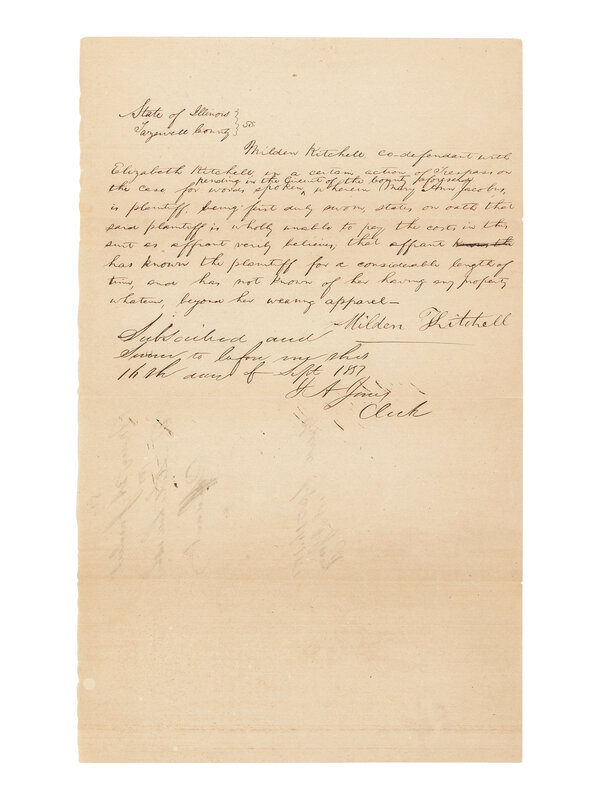 State of Illinois
Tazewell County } ss
Milden Kitchell co-defendant with
Elizabeth Kitchell in a certain action of Trespass on
pending in the Circuit of the County aforesaid
the case for words spoken, wherein Mary Ann Jacobus,
is plantiff, being first duly sworn, states on oath that
said plaintiff is wholly unable to pay the costs in this
suit as affiant verily believes, that affiant
has known the plaintiff for a considerable length of
time, and has not known of her having any property
whatever, beyond her wearing apparel—
Milden Kitchell
Subscribed and
Sworn to before me this
16th day of Sept 1857
Jones
Clerk